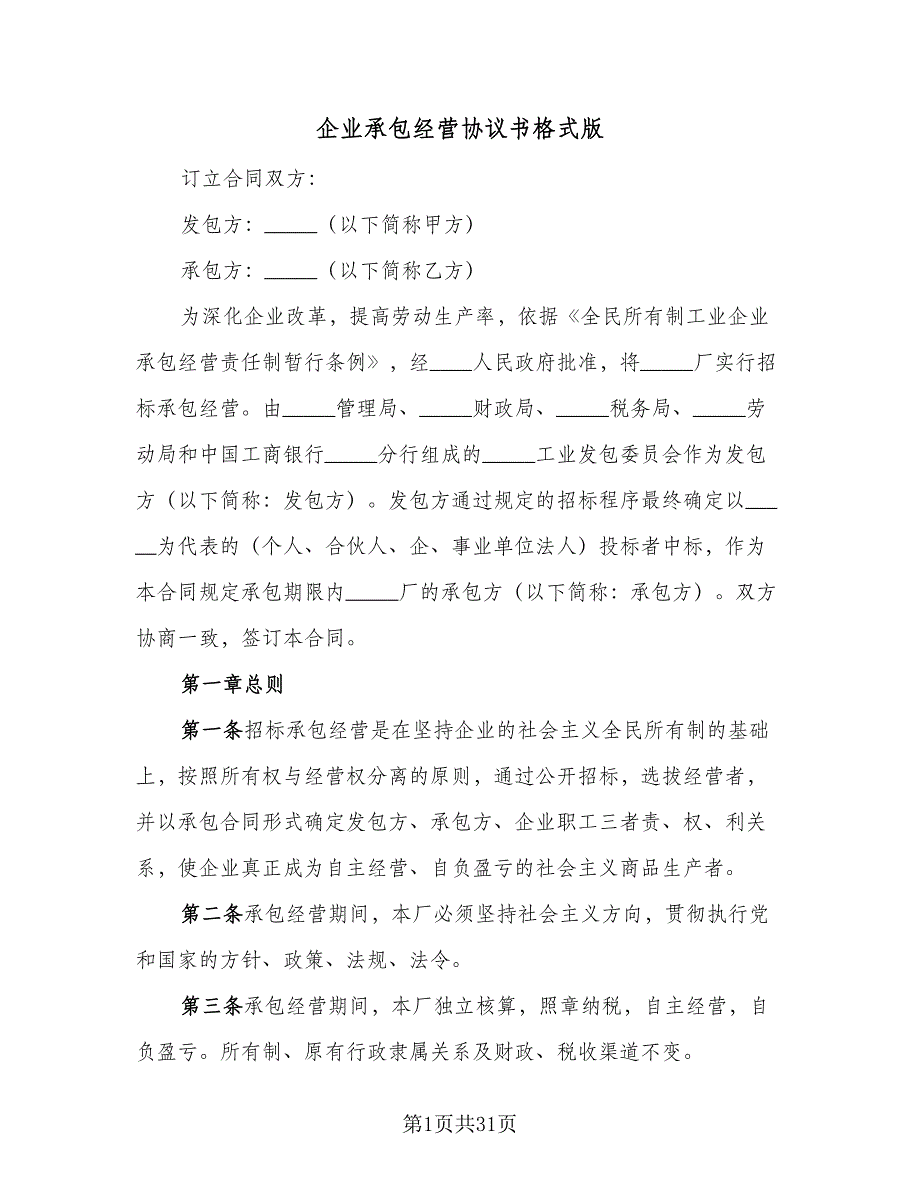 企业承包经营协议书格式版
订立合同双方：
发包方：_____（以下简称甲方）
承包方：_____（以下简称乙方）
为深化企业改革，提高劳动生产率，依据《全民所有制工业企业
承包经营责任制暂行条例》，经____人民政府批准，将_____厂实行招
标承包经营。由_____管理局、_____财政局、_____税务局、_____劳
动局和中国工商银行_____分行组成的_____工业发包委员会作为发包
方（以下简称：发包方）。发包方通过规定的招标程序最终确定以___
__为代表的（个人、合伙人、企、事业单位法人）投标者中标，作为
本合同规定承包期限内_____厂的承包方（以下简称：承包方）。双方
协商一致，签订本合同。
第一章总则
第一条招标承包经营是在坚持企业的社会主义全民所有制的基础
上，按照所有权与经营权分离的原则，通过公开招标，选拔经营者，
并以承包合同形式确定发包方、承包方、企业职工三者责、权、利关
系，使企业真正成为自主经营、自负盈亏的社会主义商品生产者。
第二条承包经营期间，本厂必须坚持社会主义方向，贯彻执行党
和国家的方针、政策、法规、法令。
第三条承包经营期间，本厂独立核算，照章纳税，自主经营，自
负盈亏。所有制、原有行政隶属关系及财政、税收渠道不变。
第1页共31页